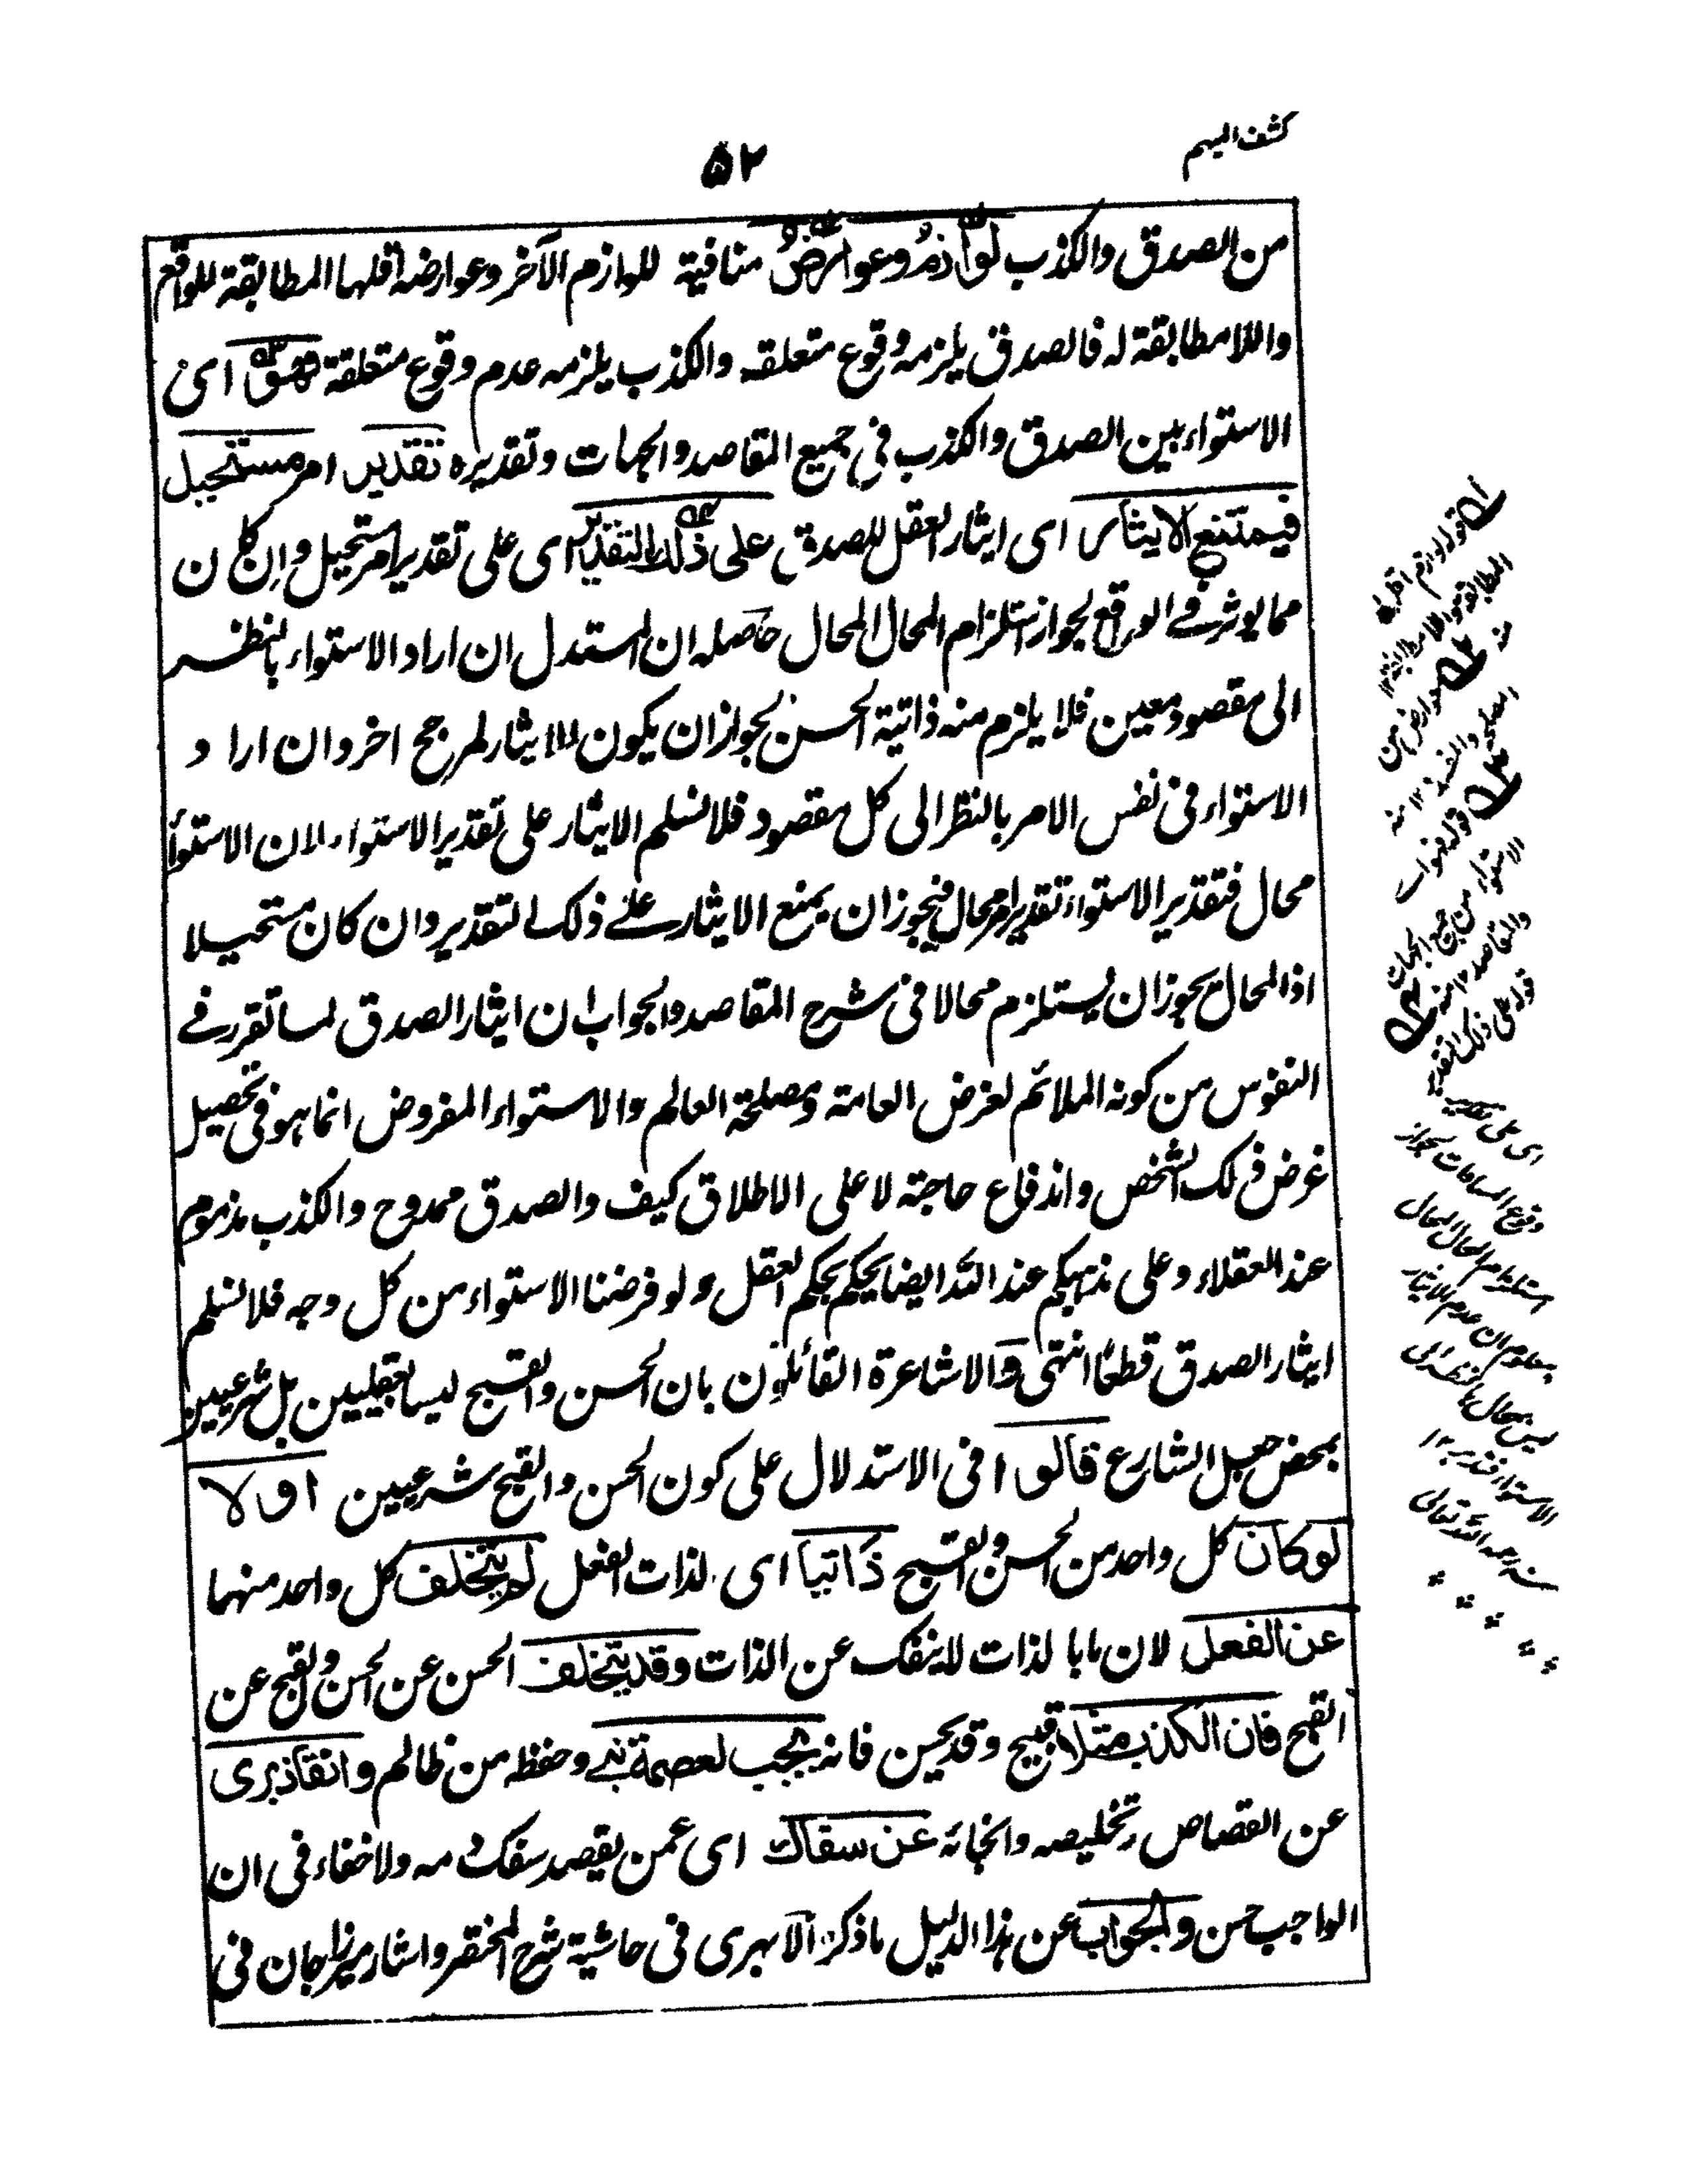 كشف المبهم
٥٢
من الصدق والكذب لوازم وعوارض منافية للوازم الآخر وعوارضه اقلها المطابقة للواقع
واللا مطابقة له فالصدق يلزمه وقوع متعلقه والكذب يلزمه عدم وقوع متعلقة فهو اى
الاستواء بين الصدق والكذب فى جميع المقاصد والجهات وتقديره تقدير امر مستحيل
فيمتنع الايثار اى ايثار العقل للصدق على ذلك التقدير اى على تقدير امر مستحيل وان كان
مما يوثر فى الواقع لجواز استلزام المحال المحال حاصله ان المستدل ان اراد الاستواء بالنظر
الى مقصود معين فلا يلزم منه ذاتية الحسن لجواز ان يكون الايثار لمرجح اخر وان اراد
الاستواء فى نفس الامر بالنظر الى كل مقصود فلا نسلم الايثار على تقدير الاستواء لان الاستواء
محال فتقدير الاستواء تقدير امر محال فيجوز ان يمنع الايثار على ذلك التقدير وان كان مستحيلا
اذ المحال يجوز ان يستلزم محالا فى شرح المقاصد والجواب ان ايثار الصدق لما تقرر فى
النفوس من كونه الملائم لغرض العامة ومصلحة العالم والاستواء المفروض انما هو فى تحصيل
غرض ذلك الشخص واندفاع حاجته لا على الاطلاق كيف والصدق ممدوح والكذب مذموم
عند العقلاء وعلى مذهبكم عند الله ايضا بحكم العقل ولو فرضنا الاستواء من كل وجه فلا نسلم
ايثار الصدق قطعًا انتهى والاشاعرة القائلون بان الحسن والقبح ليسا بعقليين بل شرعيين
بمحض جعل الشارع قالوا فى الاستدلال على كون الحسن والقبح شرعيين اولا
لو كان كل واحد من الحسن والقبح ذاتيا اى لذات الفعل لم يتخلف كل واحد منهما
عن الفعل لان ما بالذات لا ينفك عن الذات وقد يتخلف الحسن عن الحسن والقبح عن
القبح فان الكذب مثلا قبيح وقد يحسن فانه يجب لعصمة نبى وحفظه من ظالم وانقاذ برى
عن القصاص وتخليصه وانجائه عن سفاك اى عمن يقصد سفك دمه ولا خفاء فى ان
الواجب حسن والجواب عن هذا الدليل ما ذكره الآبهرى فى حاشية شرح المختصر واشار ميرزا جان فى
قوله لوازم اقلها
المطابقة واللا مطابقة ١٢
منه
عوارض من
المصلحة والمفسدة ١٢ منه
قوله فهو اى
الاستواء من جميع الجهات
والمقاصد ١٢ منه
قوله على ذلك التقدير
اى على تقدير
وقوع المساوات لجواز
استلزام المحال المحال
ليس بمحال بالنظر الى
الاستواء فتدبر ١٢
منه رحمه الله تعالى